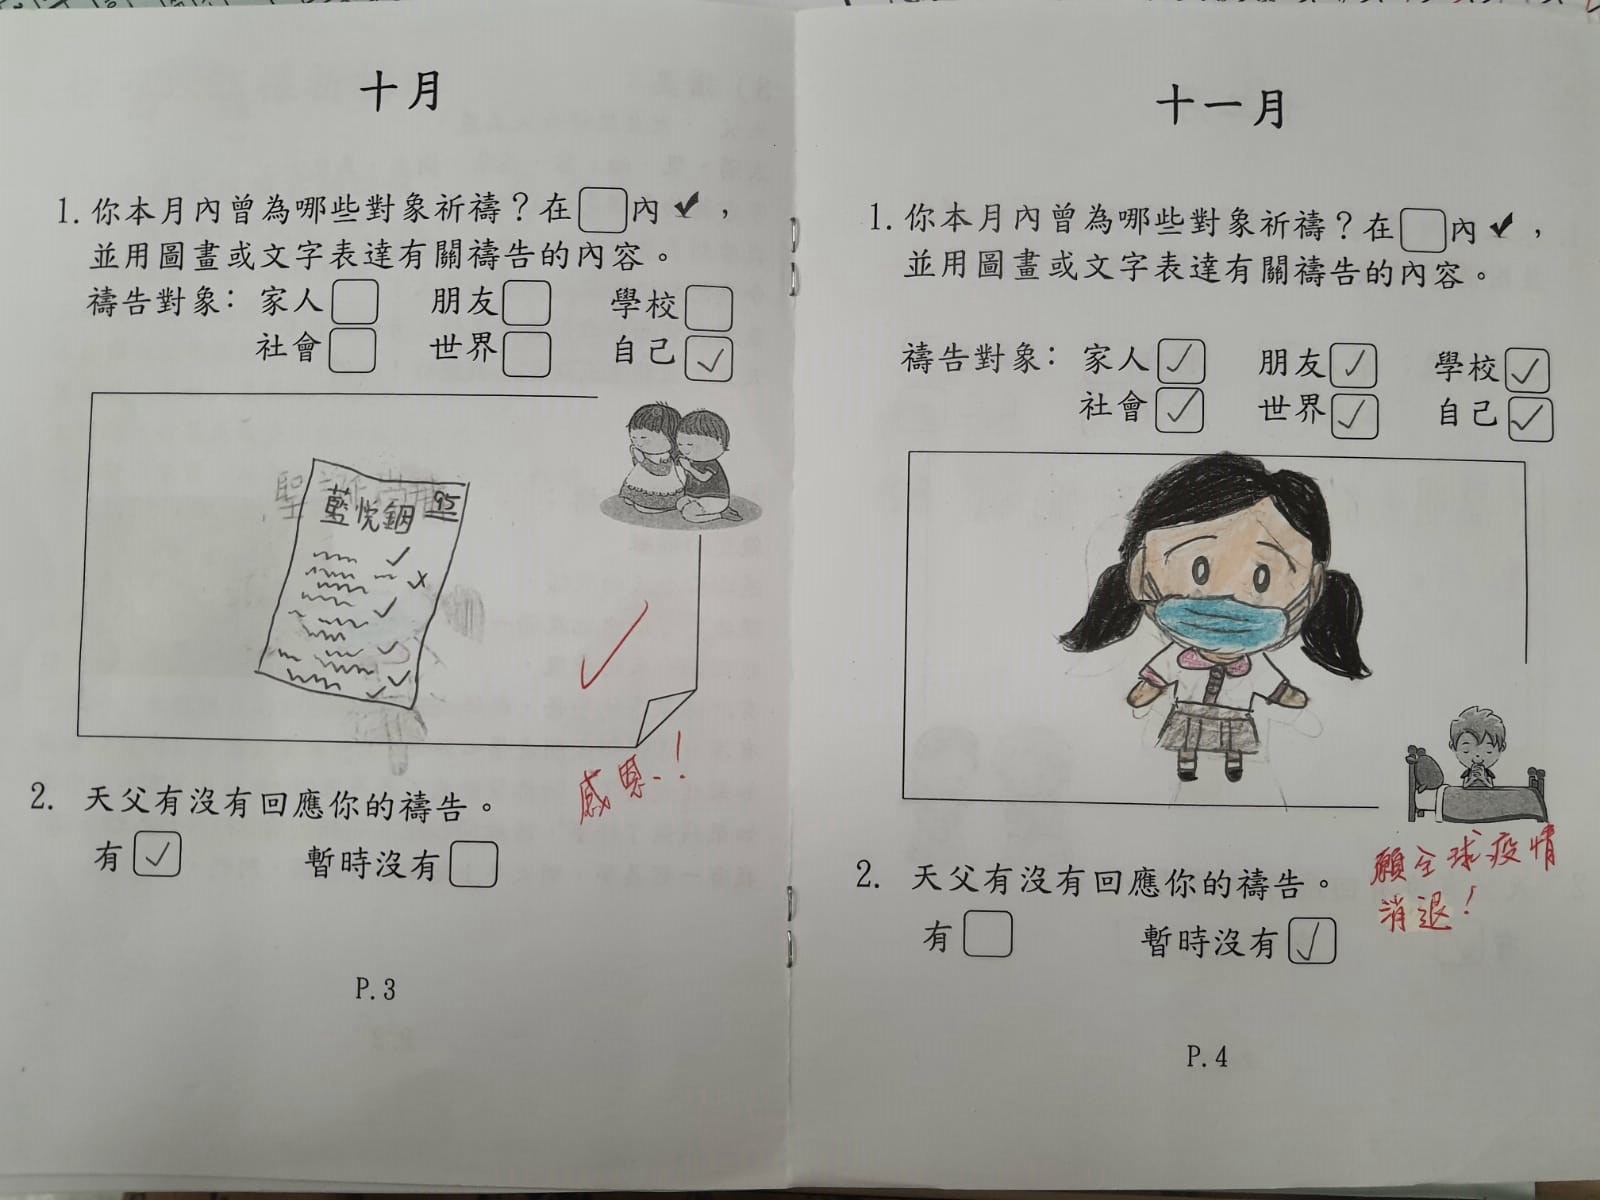 十月
1. 你本月內曾為哪些對象祈禱？在□內✔，
並用圖畫或文字表達有關禱告的內容。
禱告對象： 家人□ 朋友□ 學校□
社會□ 世界□ 自己☑
藍悦鈿 95
感恩！
2. 天父有沒有回應你的禱告。
有☑ 暫時沒有□
P.3
十一月
1. 你本月內曾為哪些對象祈禱？在□內✔，
並用圖畫或文字表達有關禱告的內容。
禱告對象： 家人☑ 朋友☑ 學校☑
社會☑ 世界☑ 自己☑
願全球疫情
消退！
2. 天父有沒有回應你的禱告。
有□ 暫時沒有☑
P.4